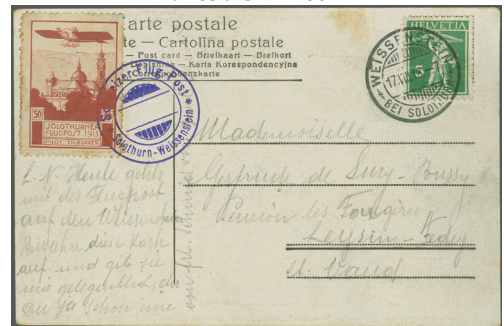 Carte postale
te — Cartolina postale
Post card — Briefkaart — Brefkort
Karta Korespondencyjna
Correspondenzkarte
50
SOLOTHURNER
FLUGPOST 1913
Schweizer. Flug-Post
Solothurn-Weissenstein
HELVETIA
5
WEISSENSTEIN
17.VIII
BEI SOLOTHURN
Mademoiselle
Gertrude de Sury-Bussy
Pension les Fougères
Leysin-Feydey
Ct. Vaud
L. N. Heute geht's
mit der Flugpost
auf den Weissenstein
Bewahre diese Karte
auf und gib sie
mir gelegentlich, da
Du ja schon eine